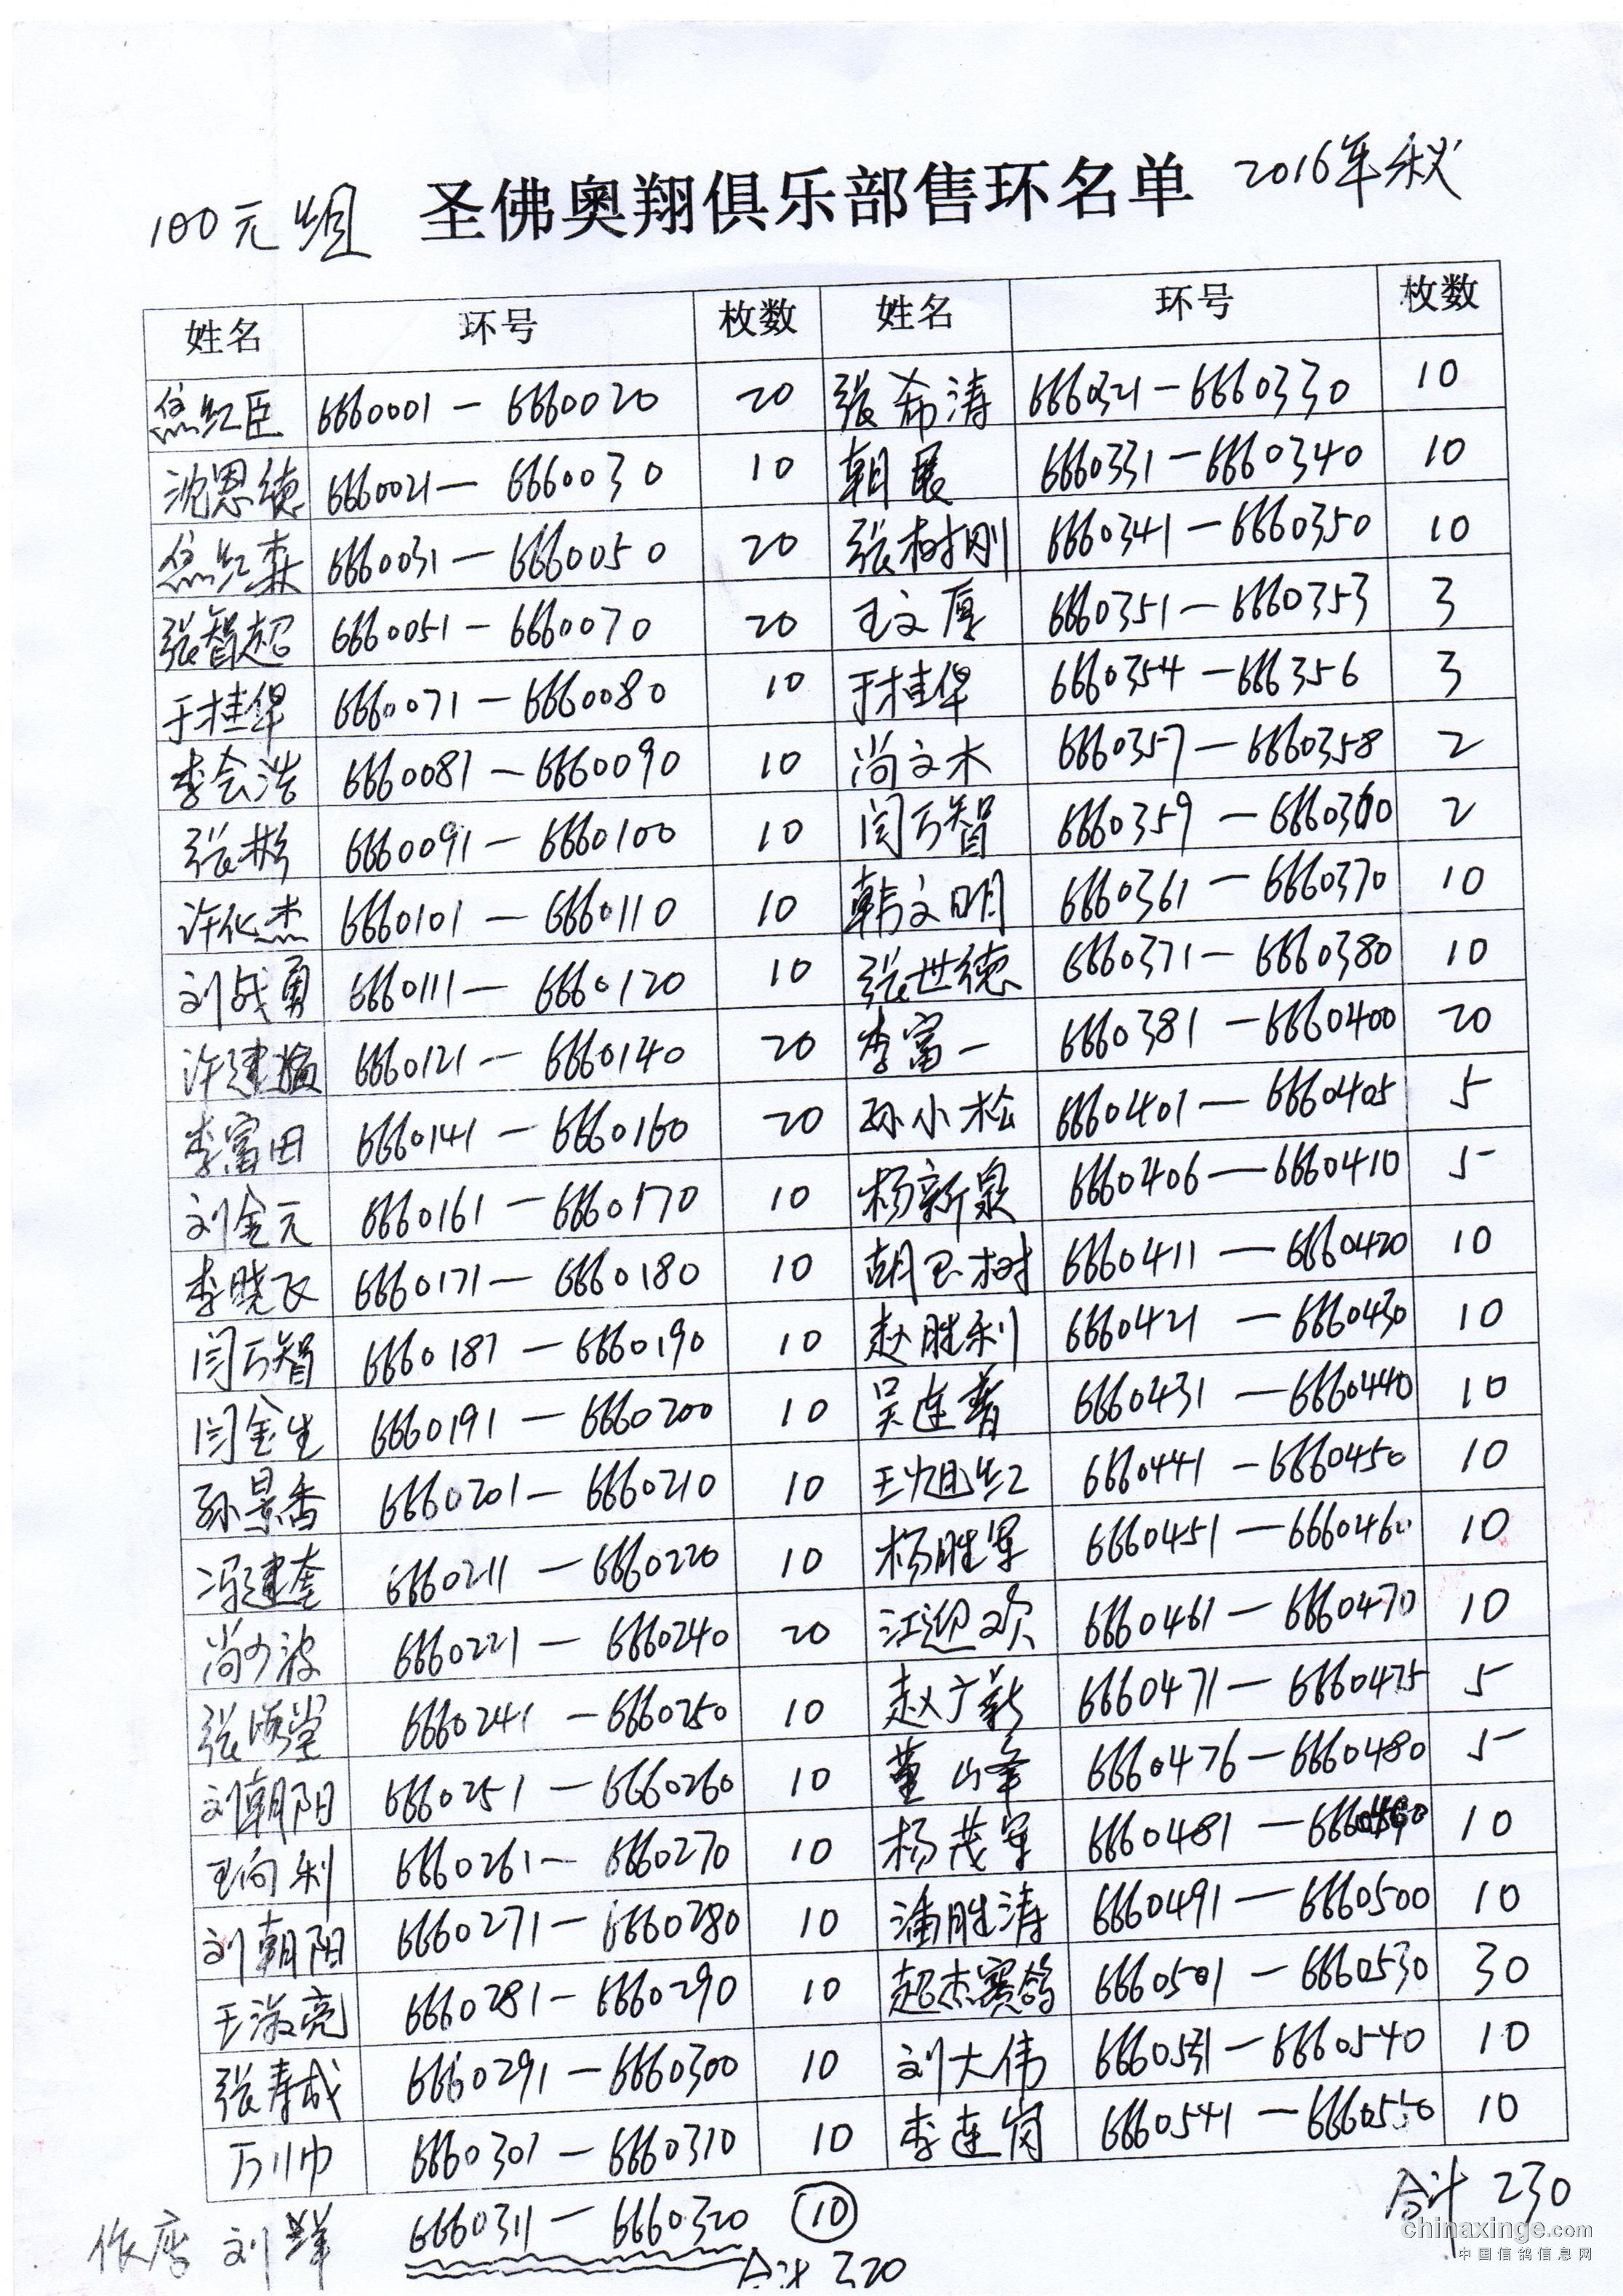 100元组 圣佛奥翔俱乐部售环名单 2016年秋
姓名 环号 枚数 姓名 环号 枚数
焦红臣 6660001－6660020 20 张希涛 6660321－6660330 10
沈恩德 6660021－6660030 10 朝展 6660331－6660340 10
焦红森 6660031－6660050 20 张树刚 6660341－6660350 10
张智超 6660051－6660070 20 王文厚 6660351－6660353 3
于桂华 6660071－6660080 10 于桂华 6660354－666356 3
李会浩 6660081－6660090 10 尚文木 6660357－6660358 2
张彬 6660091－6660100 10 闫万智 6660359－6660360 2
许化杰 6660101－6660110 10 韩文明 6660361－6660370 10
刘战勇 6660111－6660120 10 张世德 6660371－6660380 10
许建猛 6660121－6660140 20 李富一 6660381－6660400 20
李富田 6660141－6660160 20 孙小松 6660401－6660405 5
刘金元 6660161－6660170 10 杨新泉 6660406－6660410 5
李晓飞 6660171－6660180 10 胡卫树 6660411－6660420 10
闫万智 6660181－6660190 10 赵胜利 6660421－6660430 10
闫金生 6660191－6660200 10 吴连普 6660431－6660440 10
孙景香 6660201－6660210 10 王旭红 6660441－6660450 10
冯建奎 6660211－6660220 10 杨胜军 6660451－6660460 10
尚少波 6660221－6660240 20 江迎欢 6660461－6660470 10
张海堂 6660241－6660250 10 赵广新 6660471－6660475 5
刘朝阳 6660251－6660260 10 董山峰 6660476－6660480 5
王向利 6660261－6660270 10 杨茂军 6660481－6660490 10
刘朝阳 6660271－6660280 10 潘胜涛 6660491－6660500 10
王淑亮 6660281－6660290 10 超杰赛鸽 6660501－6660530 30
张寿成 6660291－6660300 10 刘大伟 6660531－6660540 10
万川巾 6660301－6660310 10 李连岗 6660541－6660550 10
刘群 6660311－6660320 10 合计 230
合计 320
chinaxinge.com
中国信鸽信息网